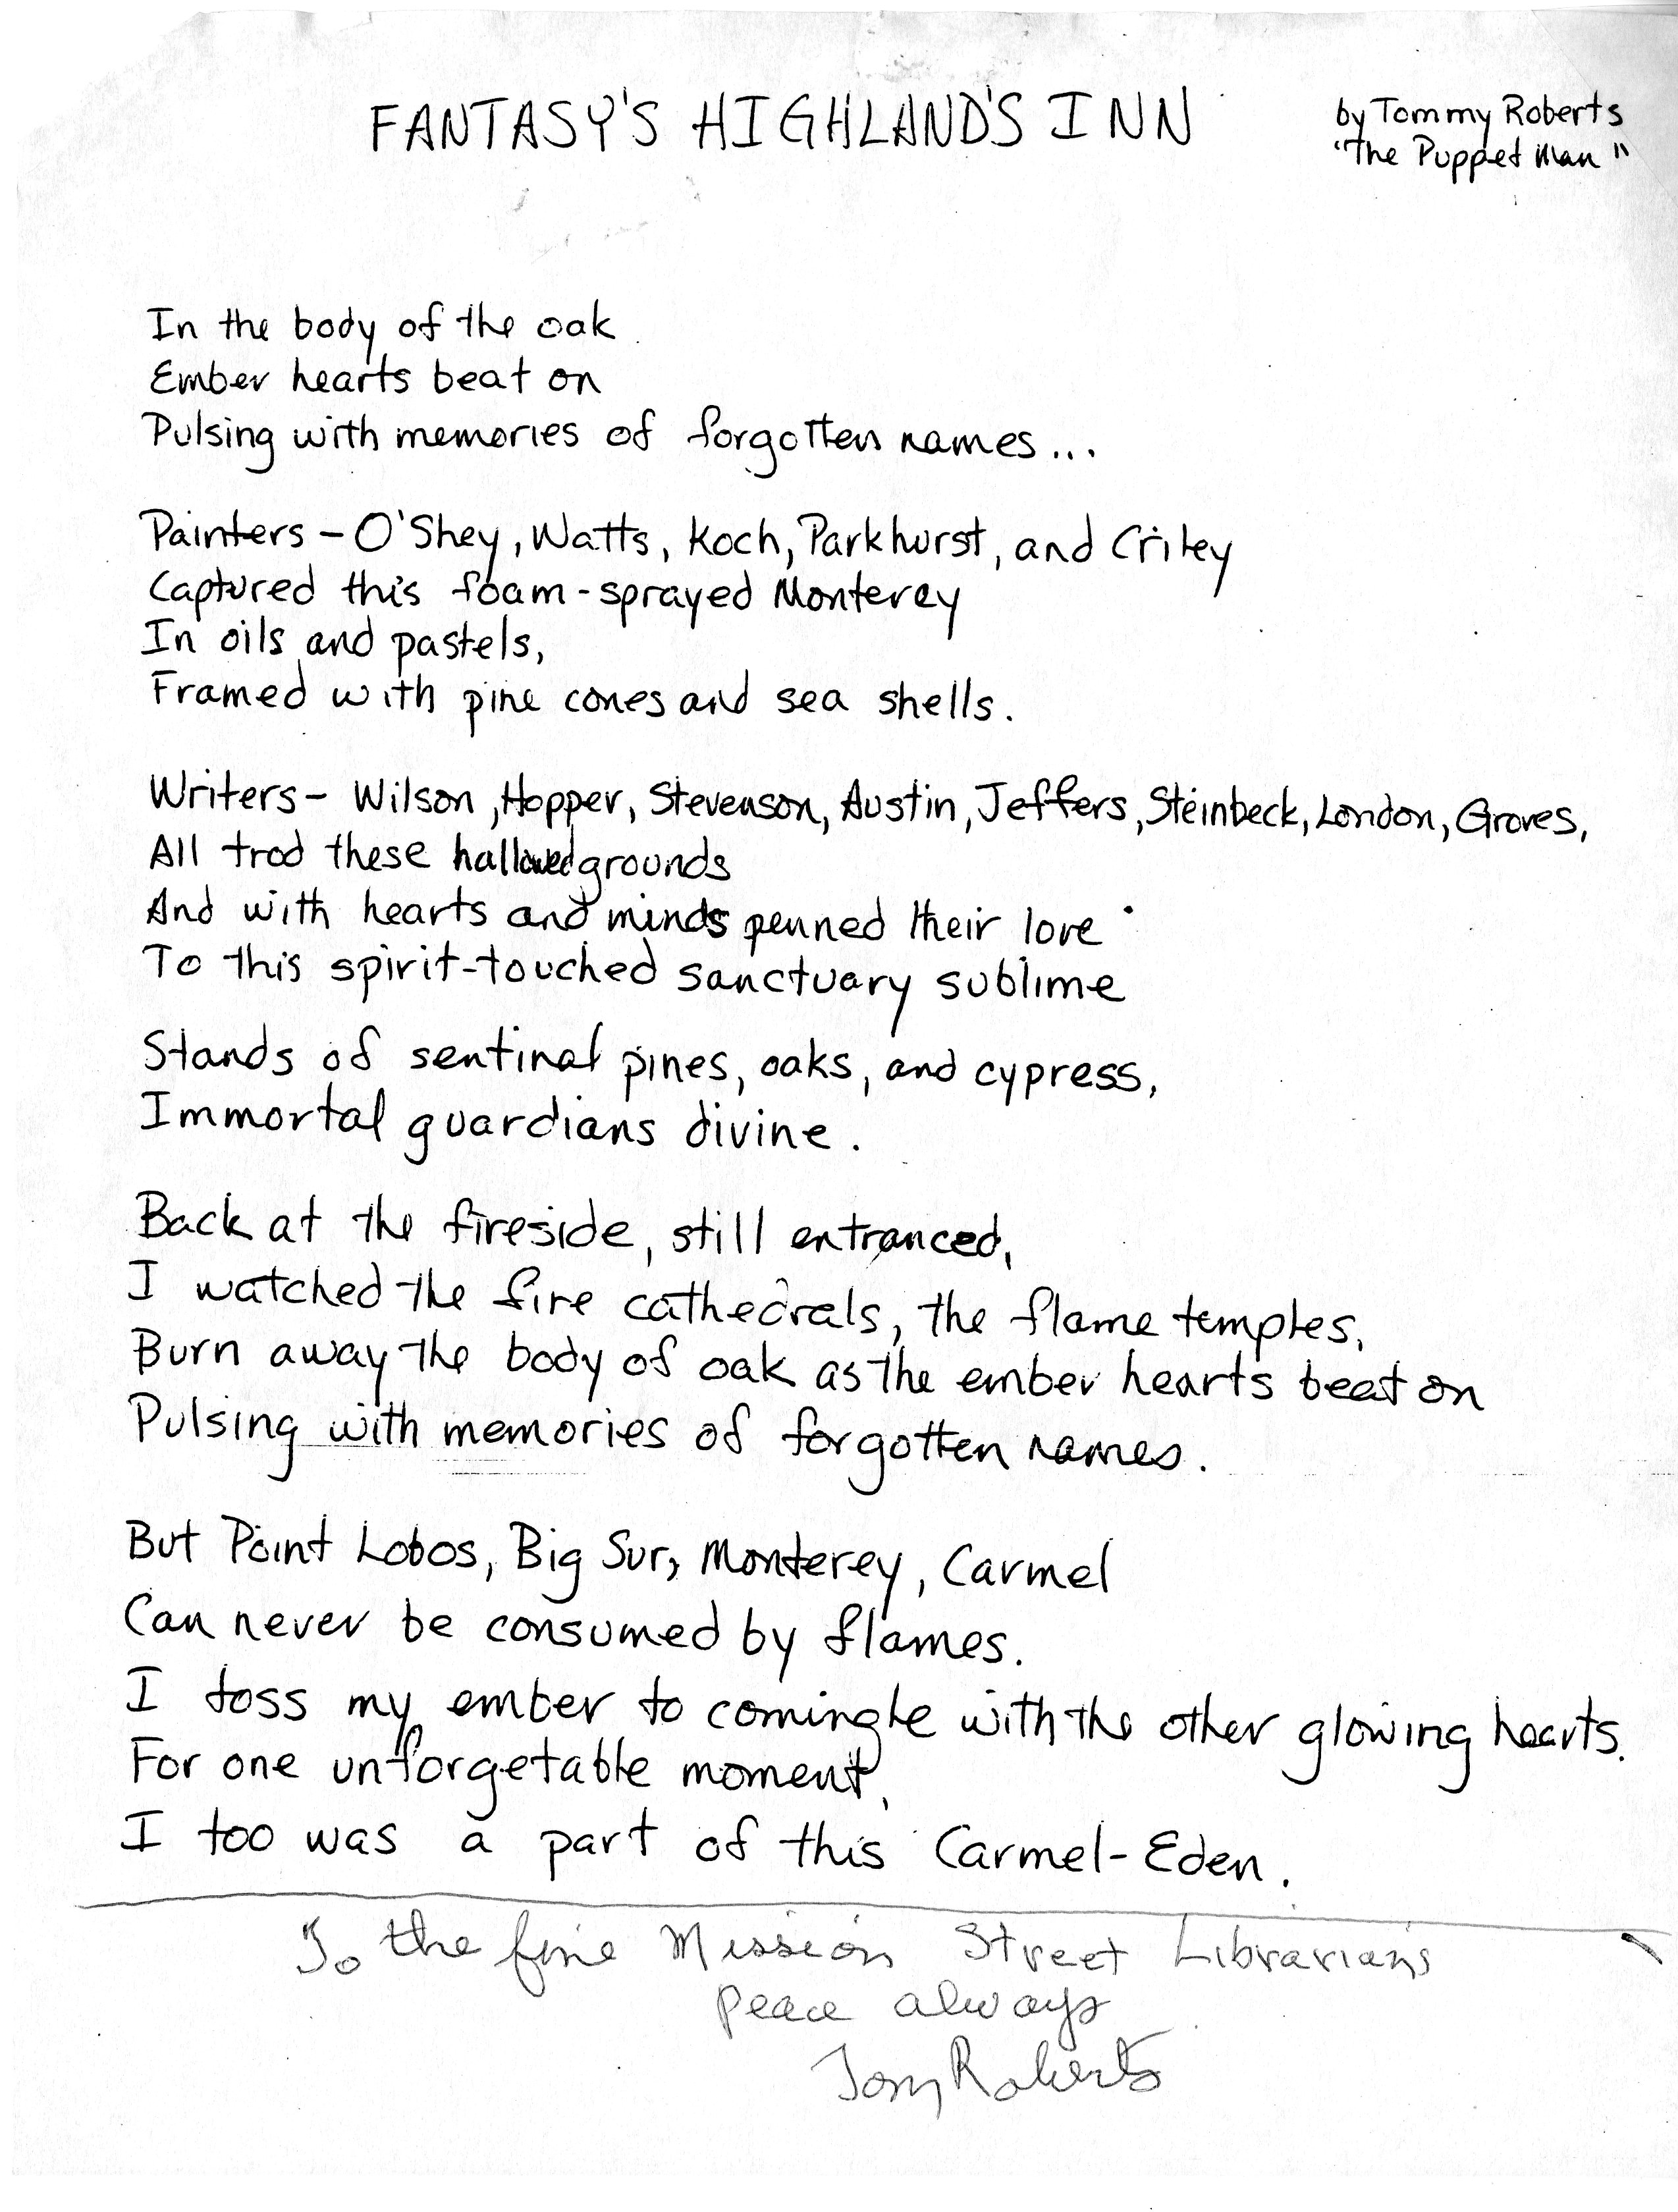 FANTASY'S HIGHLAND'S INN
by Tommy Roberts
"The Puppet Man"
In the body of the oak
Ember hearts beat on
Pulsing with memories of forgotten names...
Painters - O'Shey, Watts, Koch, Parkhurst, and Criley
Captured this foam-sprayed Monterey
In oils and pastels,
Framed with pine cones and sea shells.
Writers - Wilson, Hopper, Stevenson, Austin, Jeffers, Steinbeck, London, Groves,
All trod these hallowed grounds
And with hearts and minds penned their love
To this spirit-touched sanctuary sublime
Stands of sentinal pines, oaks, and cypress,
Immortal guardians divine.
Back at the fireside, still entranced,
I watched the fire cathedrals, the flame temples,
Burn away the body of oak as the ember hearts beat on
Pulsing with memories of forgotten names.
But Point Lobos, Big Sur, Monterey, Carmel
Can never be consumed by flames.
I toss my ember to comingle with the other glowing hearts.
For one unforgetable moment,
I too was a part of this Carmel-Eden.
To the fine Mission Street Librarians
Peace always
Tomy Roberts